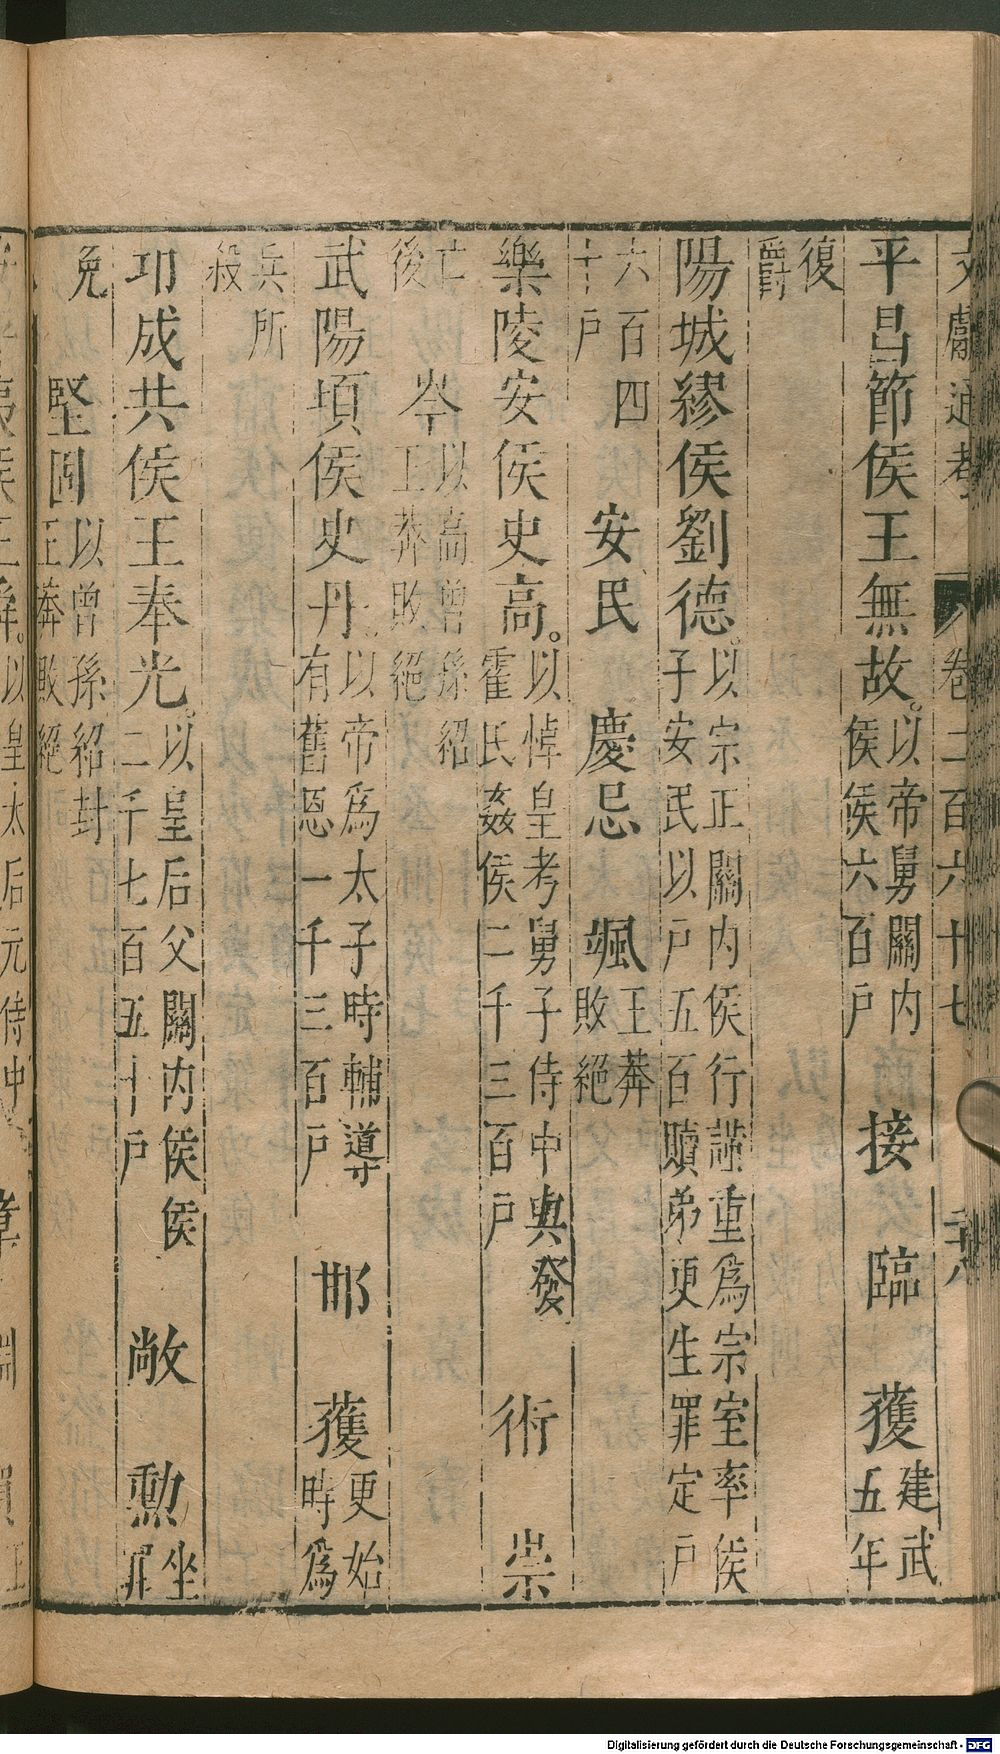 文獻通考 卷二百六十七 六
平昌節侯王無故。以帝舅關内侯侯六百戸 接 臨 獲建武五年
復爵
陽城繆侯劉德。以宗正關内侯行謹重爲宗室率侯子安民以戸五百贖弟更生罪定戸
六百四十戸 安民 慶忌 颯王莽敗絕
樂陵安侯史高。以悼皇考舅子侍中與發霍氏姦侯二千三百戸 術 崇
亡後 岑以高曾孫紹王莽敗絕
武陽頃侯史丹以帝爲太子時輔導有舊恩一千三百戸 邯 獲更始時爲
兵所殺
邛成共侯王奉光。以皇后父關内侯侯二千七百五十戸 敞 勲坐罪
免 堅固以曾孫紹封王莽敗絕
侯王舜。以皇太后元侍中 章
Digitalisierung gefördert durch die Deutsche Forschungsgemeinschaft - DFG